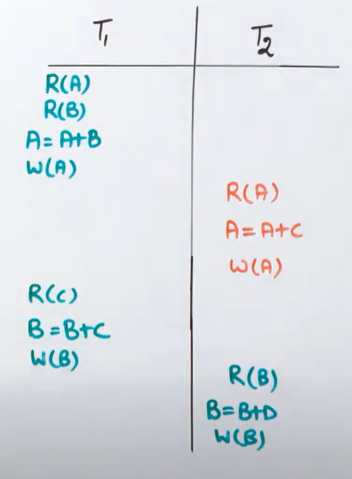 T1 T2
R(A)
R(B)
A=A+B
W(A)
R(A)
A=A+C
W(A)
R(C)
B=B+C
W(B)
R(B)
B=B+D
W(B)